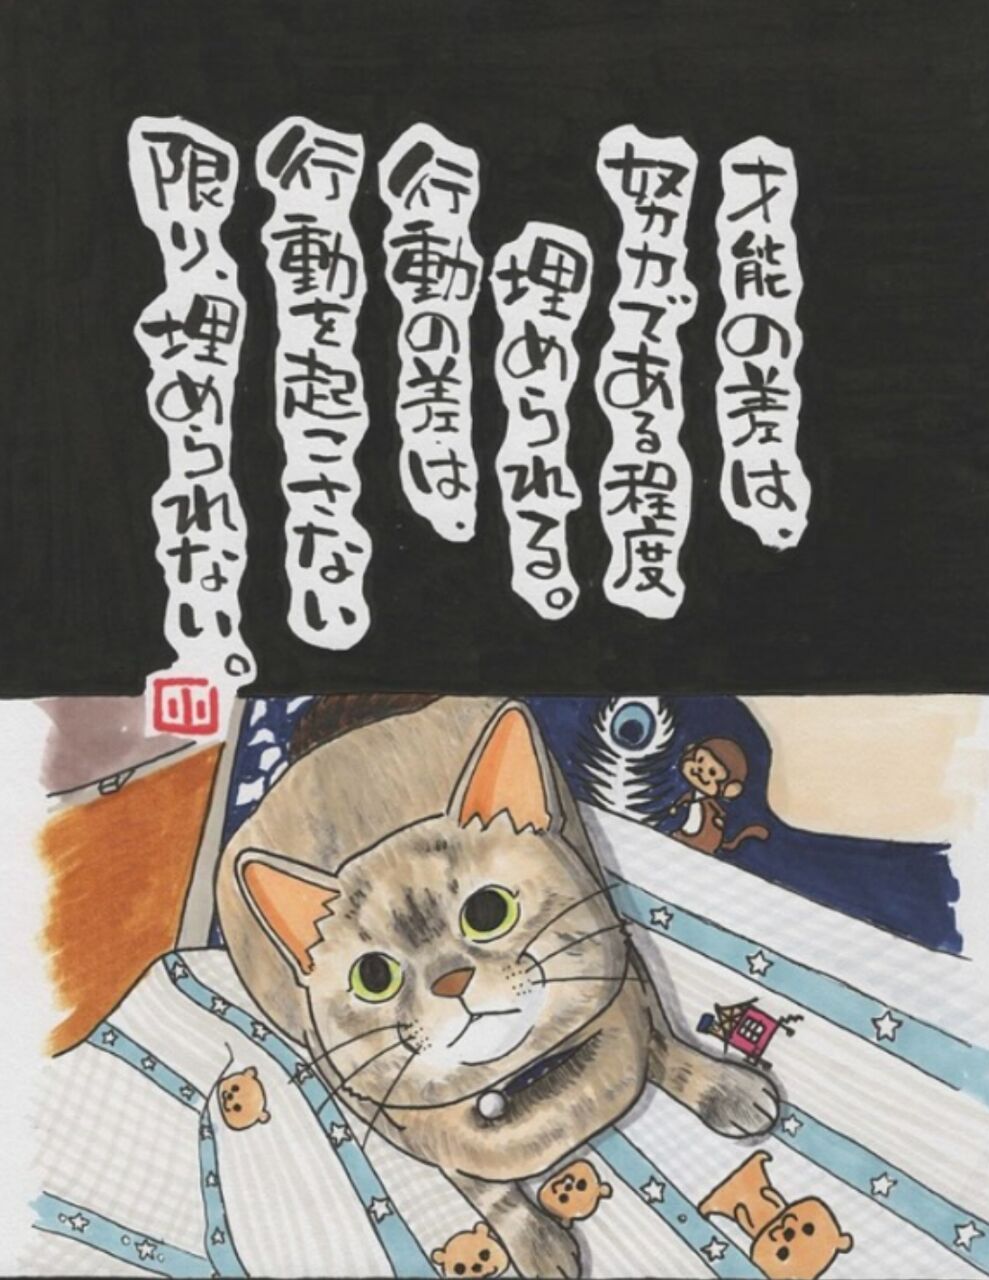 才能の差は、
努力である程度
埋められる。
行動の差は、
行動を起こさない
限り、埋められない。